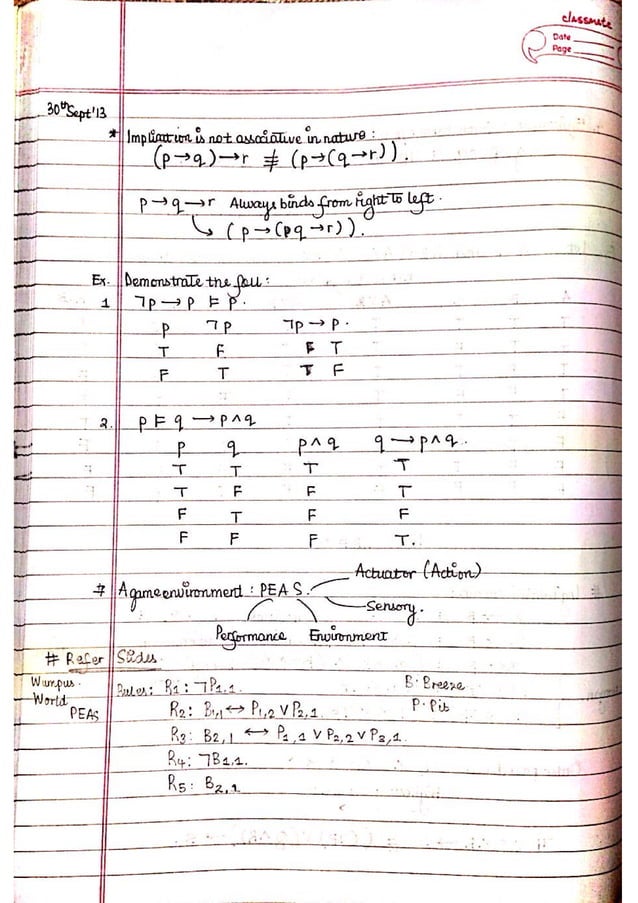 classmate
Date
Page
30th Sept'13
* Implication is not associative in nature:
(p→q)→r ≢ (p→(q→r)).
p→q→r Always binds from right to left.
↳ (p→(q→r)).
Ex. Demonstrate the foll:
1 ¬p→p ⊨ p.
p ¬p ¬p→p.
T F T
F T F
2. p ⊨ q→p∧q
p q p∧q q→p∧q.
T T T T
T F F T
F T F F
F F F T.
# A game environment: PEAS.
Actuator (Action)
Sensory.
Performance Environment
# Refer Slides.
Wumpus World PEAS
Rules: R1: ¬P1,1 B·Breeze
R2: B1,1 ↔ P1,2 ∨ P2,1 P·Pit
R3: B2,1 ↔ P1,1 ∨ P2,2 ∨ P3,1
R4: ¬B1,1.
R5: B2,1